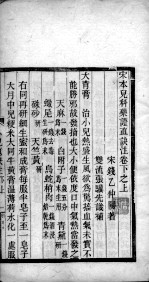 宋本兒科藥證直訣注卷下之上
宋 錢乙仲陽著
雙流張驥先識補
大青膏 治小兒熱盛生風欲為驚搐血氣未實不
能勝邪故發搐也大小便依度口中氣熱當發之
天麻一錢 白附子一錢五分 青黛研
蠍尾 烏蛇稍肉
硃砂研 天竺黃研
右同再研細生蜜和成膏每服半皂子至一皂子
大月中兒粳米大同牛黃膏溫薄荷水化一處服